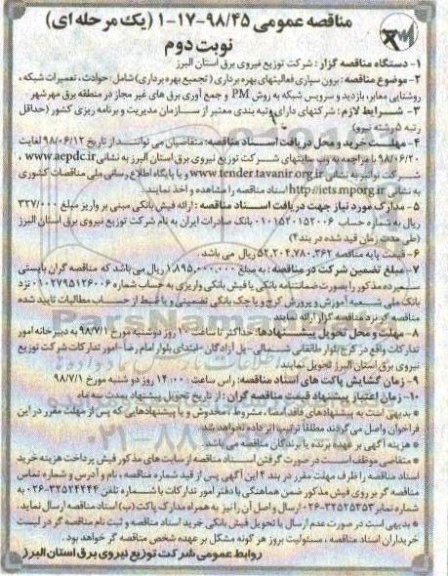 مناقصه عمومی ۹۸/۴۵-۱۷-۱ (یک مرحله ای)
نوبت دوم
۱- دستگاه مناقصه گزار : شرکت توزیع نیروی برق استان البرز
۲- موضوع مناقصه : برون سپاری فعالیتهای بهره برداری (تجمیع بهره برداری) شامل: حوادث، تعمیرات شبکه،
روشنایی معابر، بازدید و سرویس شبکه به روش PM و جمع آوری برق های غیر مجاز در منطقه برق مهرشهر
۳- شرایط لازم: شرکتهای دارای رتبه بندی معتبر از سازمان مدیریت و برنامه ریزی کشور (حداقل
رتبه ۵ رشته نیرو)
۴- مهلت خرید و محل دریافت اسناد مناقصه: متقاضیان می توانند از تاریخ ۹۸/۰۶/۱۲ لغایت
۹۸/۰۶/۲۰ با مراجعه به وب سایتهای شرکت توزیع نیروی برق استان البرز به نشانی www.aepdc.ir ،
شرکت توانیر به نشانی www.tender.tavanir.org.ir و یا پایگاه اطلاع رسانی ملی مناقصات کشوری
به نشانی http://iets.mporg.ir اسناد مناقصه را مشاهده و اخذ نمایند.
۵- مدارک مورد نیاز جهت دریافت اسناد مناقصه : ارائه فیش بانکی مبنی بر واریز مبلغ ۳۲۷/۰۰۰
ریال به شماره حساب ۰۱۰۱۵۲۰۱۵۲۰۰۶ بانک صادرات ایران به نام شرکت توزیع نیروی برق استان البرز
(طی مدت زمان قید شده در بند۴)
۶- قیمت پایه مناقصه ۵۲,۲۰۴,۷۸۰,۳۶۲ ریال می باشد.
۷- مبلغ تضمین شرکت در مناقصه : به مبلغ ۱,۸۹۵,۰۰۰,۰۰۰ ریال می باشد که مناقصه گران بایستی
سپرده مذکور را بصورت ضمانتنامه بانکی یا فیش بانکی واریزی به حساب شماره ۰۱۰۲۷۹۵۱۳۶۰۰۶ نزد
بانک ملی شعبه آموزش و پرورش کرج و یا چک بانکی تضمینی و یا ضبط از حساب مطالبات تایید شده
مناقصه گر نزد مناقصه گزار ارائه نمایند
۸- مهلت و محل تحویل پیشنهادها: حداکثر تا ساعت ۱۰ روز دوشنبه مورخ ۹۸/۷/۱ به دبیرخانه امور
تدارکات واقع در کرج بلوار طالقانی شمالی- پل آزادگان -ابتدای بلوار امام رضا- امور تدارکات شرکت توزیع
نیروی برق استان البرز تحویل نمایند.
۹- زمان گشایش پاکت های اسناد مناقصه: راس ساعت ۱۴:۰۰ روز دوشنبه مورخ ۹۸/۷/۱
۱۰- زمان اعتبار پیشنهاد قیمت مناقصه گران : از تاریخ تحویل پیشنهاد بمدت سه ماه
* بدیهی است به پیشنهادهای فاقد امضاء، مشروط، مخدوش و یا پیشنهادهایی که پس از مهلت مقرر در این
فراخوان واصل می گردند مطلقا ترتیب اثر داده نخواهد شد
* هزینه آگهی بر عهده برنده یا برندگان مناقصه می باشد
* متقاضی موظف است در صورت گرفتن اسناد مناقصه از سایت های مذکور فیش پرداخت هزینه خرید
اسناد مناقصه را ظرف مهلت مقرر در بند ۴ این آگهی پس از قید شماره مناقصه ، نام و آدرس و شماره تماس
مناقصه گر بر روی فیش مذکور ضمن هماهنگی با دفتر امور تدارکات با شماره تلفن ۳۲۵۲۴۴۴۴-۰۲۶ به
شماره نمابر ۳۲۵۲۵۳۵۳-۰۲۶ ارسال و اصل آن را نیز به همراه مدارک پاکت (ب) اسناد مناقصه ارسال نماید.
* بدیهی است در صورت عدم ارسال یا تحویل فیش بانکی خرید اسناد مناقصه و ثبت نام مناقصه گر در لیست
خریداران اسناد مناقصه ، مسئولیت بروز هر گونه مشکل بر عهده شخص مناقصه گر خواهد بود.
روابط عمومی شرکت توزیع نیروی برق استان البرز